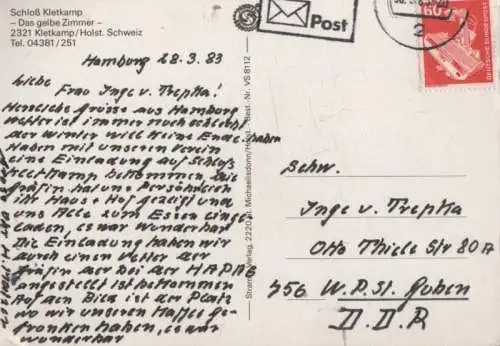 Schloß Kletkamp
– Das gelbe Zimmer –
2321 Kletkamp/Holst. Schweiz
Tel. 04381/251
Hamburg 28.3.83
Liebe
Frau Inge v. Trepka!
Herzliche Grüsse aus Hamburg
Wetter ist immer noch schlecht
der Winter will keine Ende haben
Haben mit unseren Verein
eine Einladung auf Schloß
Kletkamp bekommen Die
Gräfin hat uns Persöhnlich
ihr Haus + Hof gezeigt und
uns Alle zum Essen einge
laden, es war wunderbar
Die Einladung haben wir
durch einen Vetter der
Gräfin der bei der HAPAG
angestellt ist bekommen
Auf den Bild ist der Platz
wo wir unseren Kaffee ge-
trunken haben, es war
wunderbar
Strame-Verlag, 2220 St. Michaelisdonn/Holst. · Best.-Nr. VS 8112
Post
2
60
DEUTSCHE BUNDESPOST
Schw.
Inge v. Trepka
Otto Thiele Str 80A
756 W.P.St. Guben
D.D.R